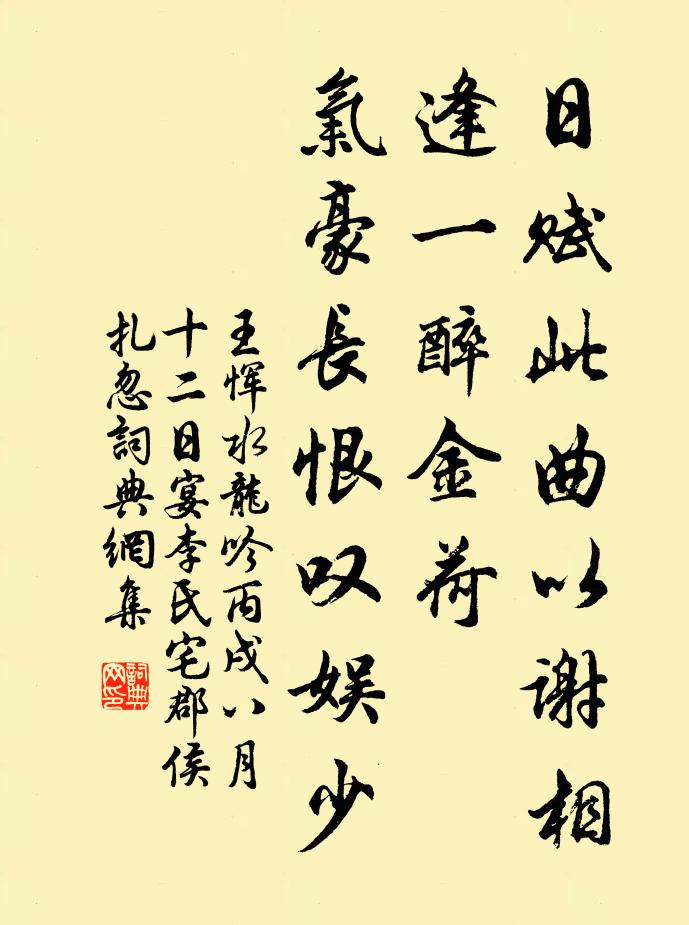 日賦此曲以謝相
逢一醉金荷
氣豪長恨叹娱少
王惲水龍吟丙戌八月
十二日宴李氏宅郡侯
扎忽詞典網集
詞典
网印